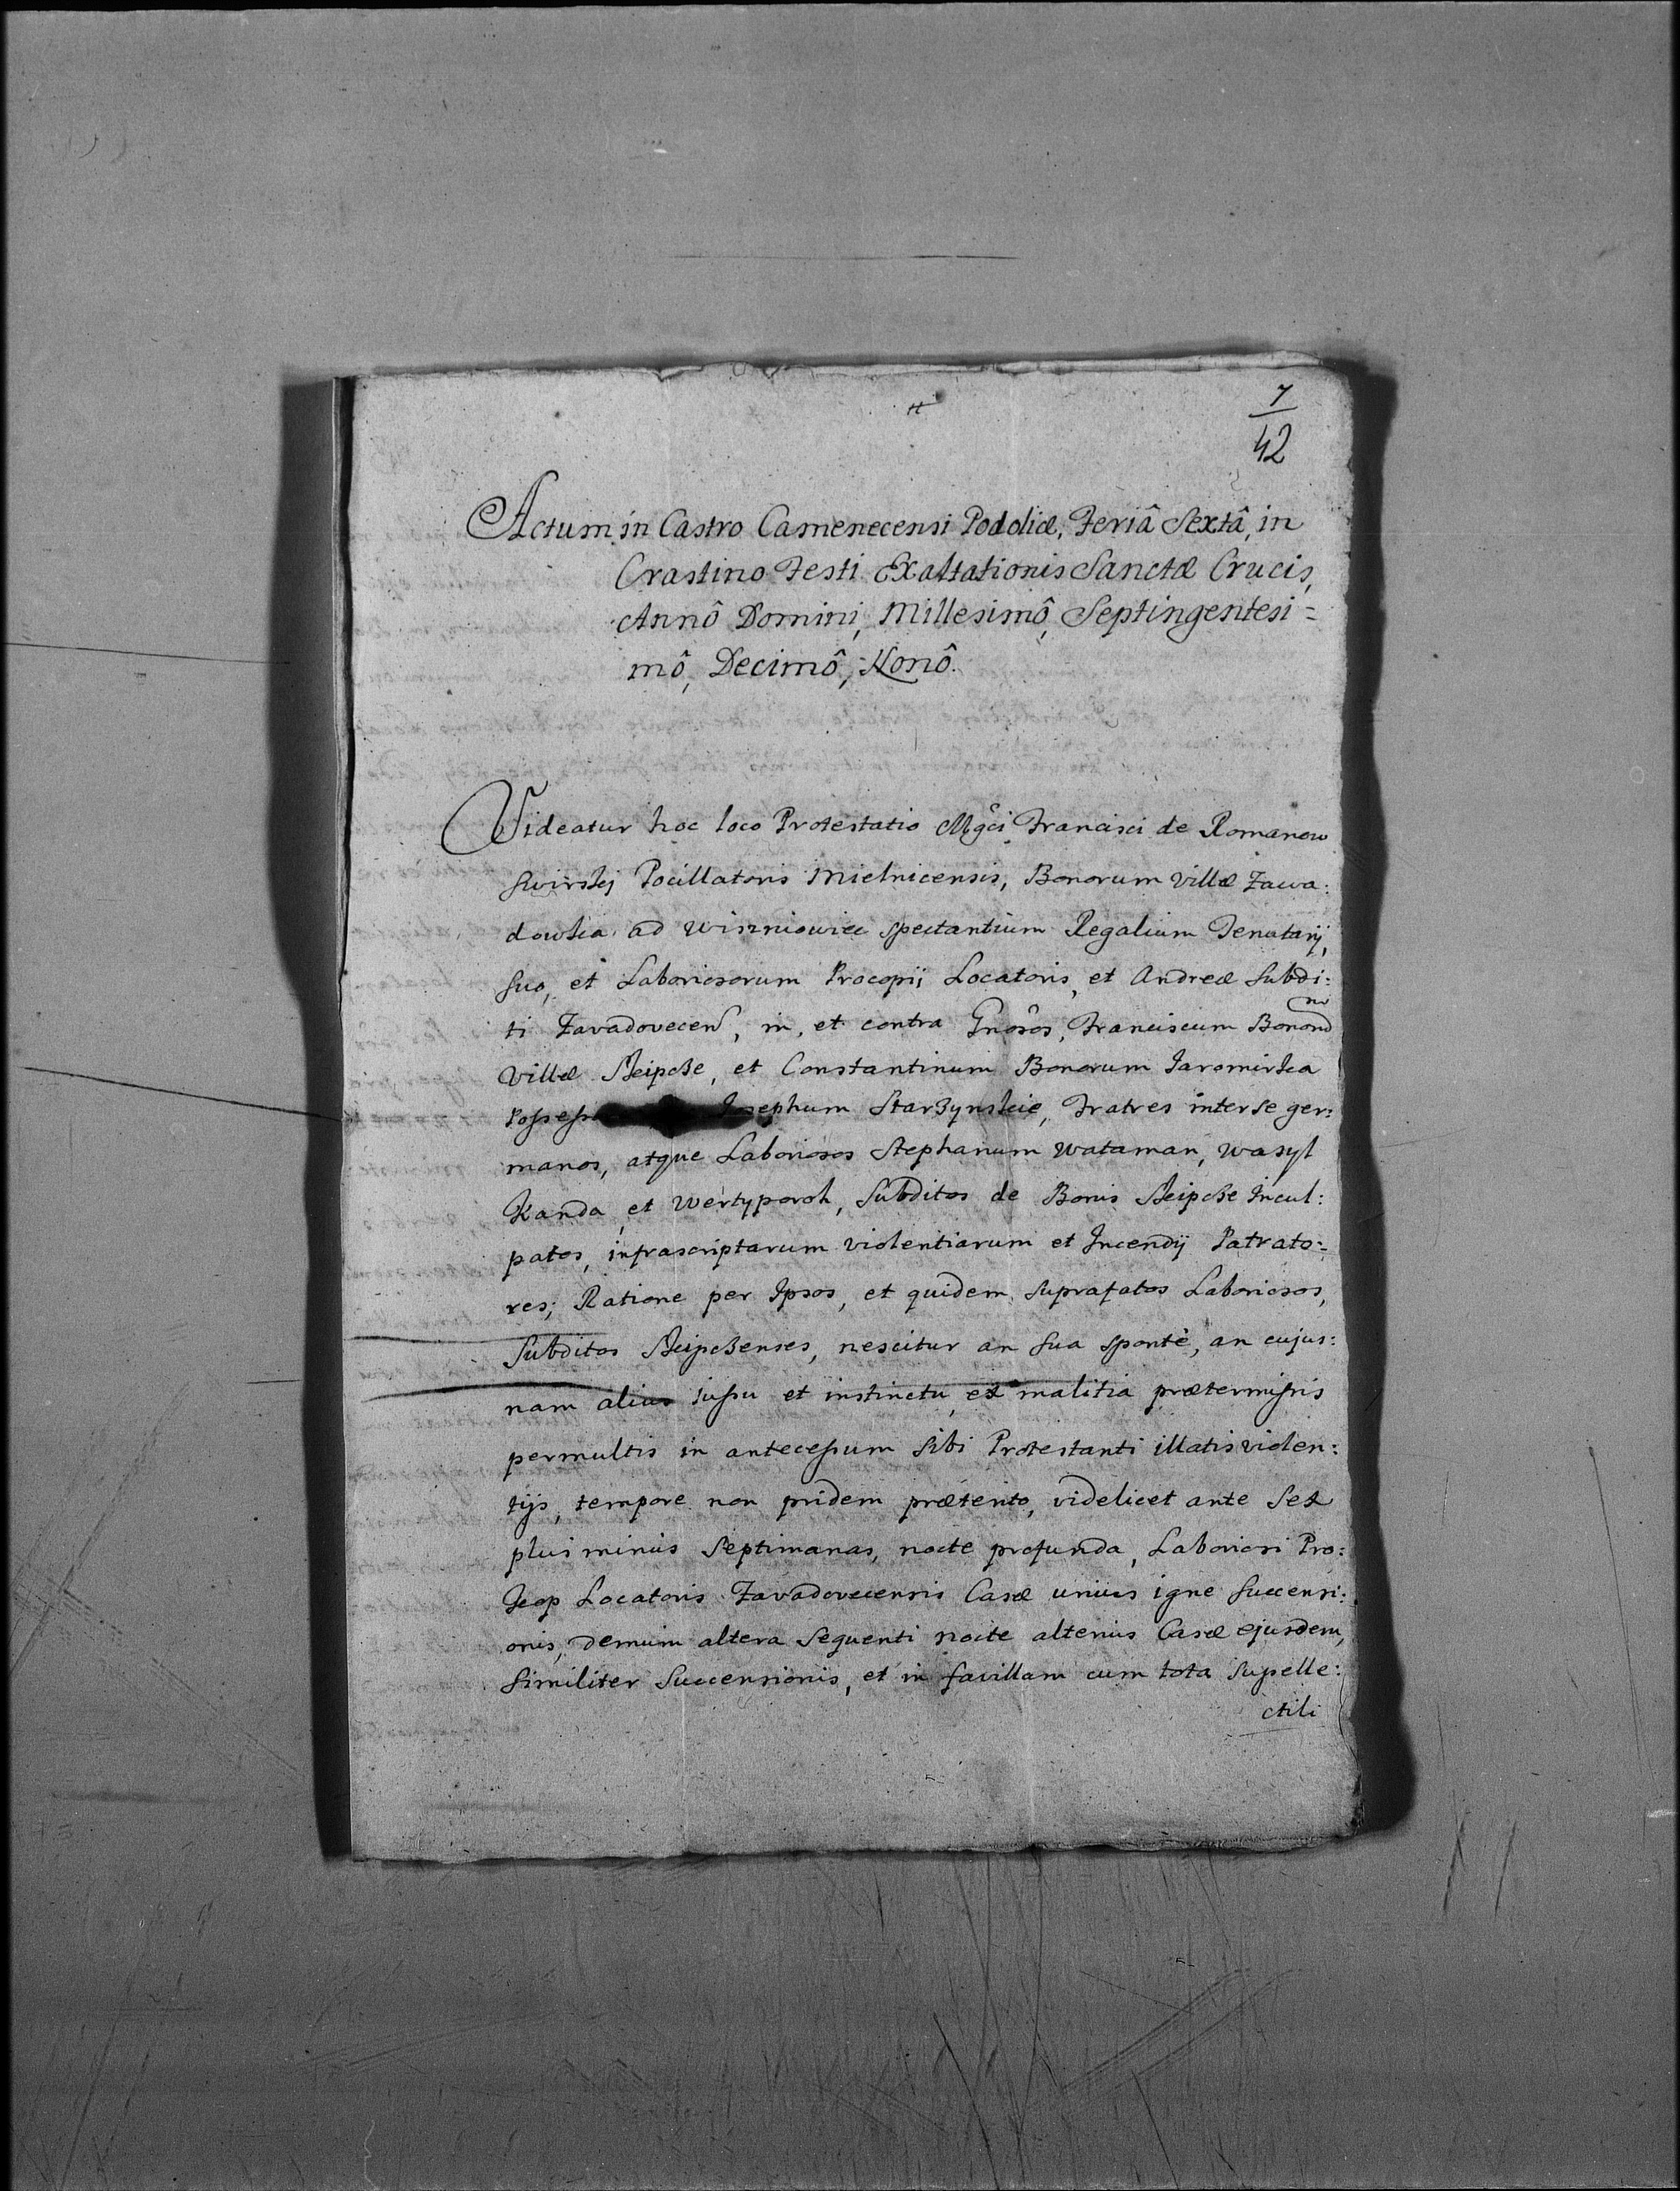 7
42
Actum in Castro Camenecensi Podoliæ, Feriâ Sextâ, in
Crastino Festi Exaltationis Sanctæ Crucis,
Annô Domini, Millesimô, Septingentesi=
mô, Decimô, Nonô.
Videatur hoc loco Protestatio Mgci Francisci de Romanow
Swirskj Pocillatoris Mielnicensis, Bonorum Villæ Zawa:
dowka ad Wiszniowiec spectantium Regalium Tenutarij,
suo, et Laboriosorum Procopij Locatoris, et Andreæ Subdi:
ti Zavadovecen, in, et contra Gnosos, Franciscum Bonorū
Villæ Skipcze, et Constantinum Bonorum Jaromirka
Josephum Starzynskie, Fratres inter se ger:
manos, atque Laboriosos Stephanum Wataman, Wasyl
Kanda, et Wertyporoh, Subditos de Bonis Skipcze Incul:
patos, infrascriptarum violentiarum et Incendij Patrato:
res; Ratione per Ipsos, et quidem suprafatos Laboriosos,
Subditos Skipczenses, nescitur an sua spontè, an cujus:
nam alius jussu et instinctu, ex malitia prætermissis
permultis in antecessum sibi Protestanti illatis violen:
tijs, tempore non pridem præterito, videlicet ante sex
plus minus Septimanas, nocte profunda, Laboriosi Pro:
kop Locatoris Zavadovecensis Casæ unius igne succensi:
onis, demum altera sequenti nocte alterius Casæ ejusdem,
similiter succensionis, et in favillam cum tota supelle:
ctili